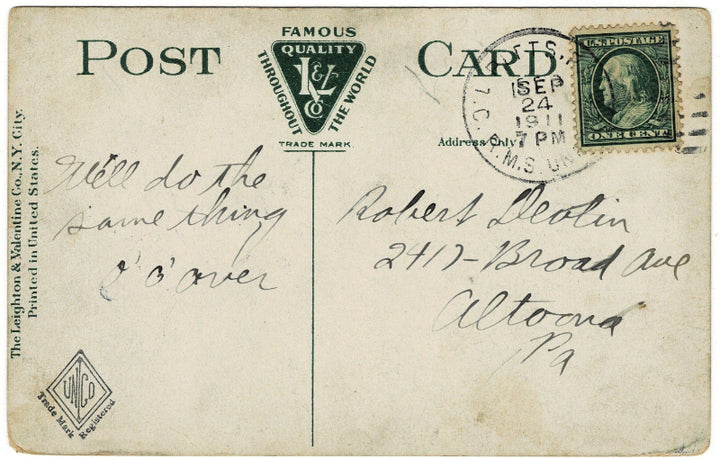 POST CARD
FAMOUS
QUALITY
L&V
Co
THROUGHOUT THE WORLD
TRADE MARK.
Address Only
SEP
24
1911
7 PM
R.M.S.
U.S. POSTAGE
ONE CENT
The Leighton & Valentine Co., N.Y. City.
Printed in United States.
We'll do the
same thing
over
Robert Devlin
2417-Broad Ave
Altoona
Pa
UNCo
Trade Mark Registered